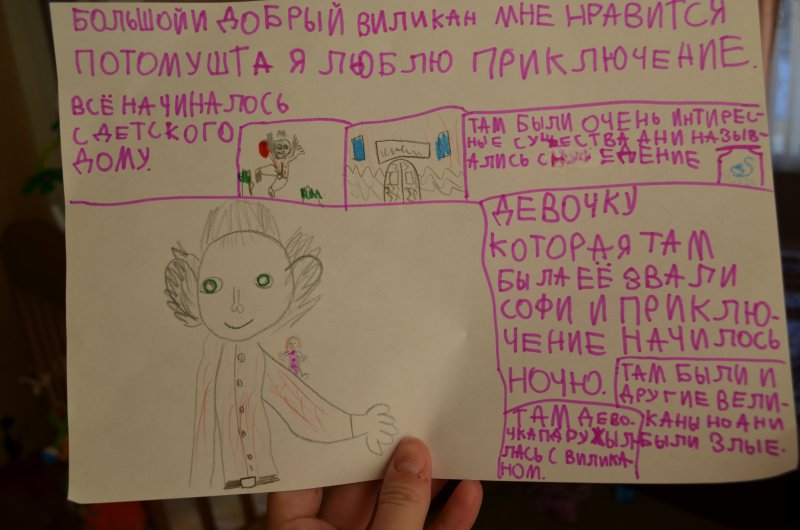 БОЛЬШОЙ И ДОБРЫЙ ВИЛИКАН МНЕ НРАВИТСЯ
ПОТОМУШТА Я ЛЮБЛЮ ПРИКЛЮЧЕНИЕ.
ВСЁ НАЧИНАЛОСЬ
С ДЕТСКОГО
ДОМУ.
ТАМ БЫЛИ ОЧЕНЬ ИНТИРЕС-
НЫЕ СУЩЕСТВА АНИ НАЗЫВ-
АЛИСЬ ЕДЕНИЕ
ДЕВОЧКУ
КОТОРАЯ ТАМ
БЫЛА ЕЁ ЗВАЛИ
СОФИ И ПРИКЛЮ-
ЧЕНИЕ НАЧИЛОСЬ
НОЧЮ.
ТАМ БЫЛИ И
ДРУГИЕ ВЕЛИ-
КАНЫ НО АНИ
БЫЛИ ЗЛЫЕ.
ТАМ ДЕВО-
ЧКА ПАДРУЖЫ
ЛАСЬ С ВИЛИКА-
НОМ.